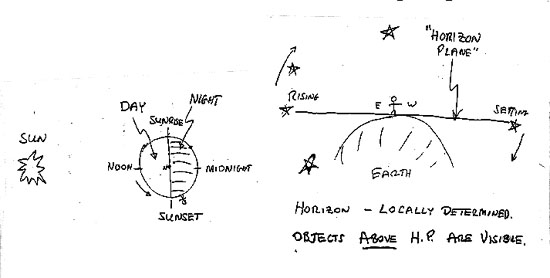 SUN
DAY
NIGHT
SUNRISE
NOON
N
MIDNIGHT
SUNSET
"HORIZON
PLANE"
RISING
E W
SETTING
EARTH
HORIZON - LOCALLY DETERMINED.
OBJECTS ABOVE H.P. ARE VISIBLE.